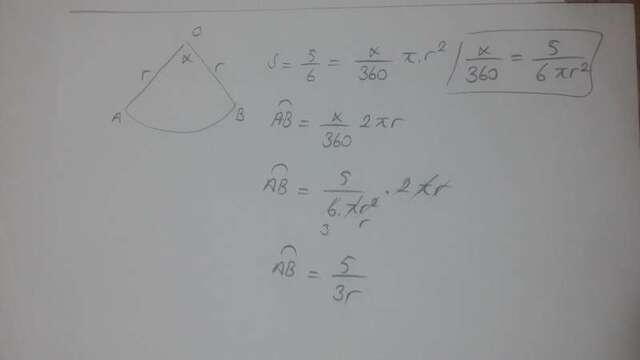 O
x
r
r
A
B
S = 5/6 = x/360 π.r² / x/360 = 5/6πr²
AB = x/360 2πr
AB = 5/6.πr² . 2πr
3 r
AB = 5/3r